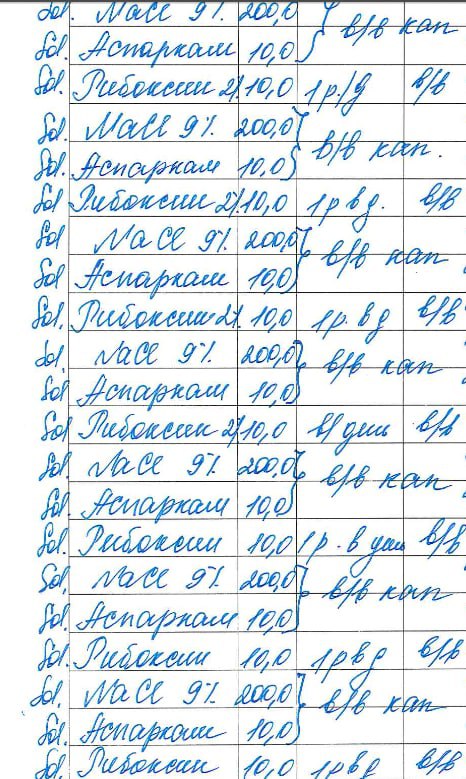 Sol. NaCl 9% 200,0 } в/в кап
Sol. Аспаркам 10,0
Sol. Рибоксин 2% 10,0 1 р./д в/в
Sol. NaCl 9% 200,0 } в/в кап.
Sol. Аспаркам 10,0
Sol Рибоксин 2% 10,0 1 р в д. в/в
Sol NaCl 9% 200,0 } в/в кап
Sol Аспаркам 10,0
Sol. Рибоксин 2% 10,0 1 р. в д в/в
Sol. NaCl 9% 200,0 } в/в кап
Sol Аспаркам 10,0
Sol Рибоксин 2% 10,0 в день в/в
Sol. NaCl 9% 200,0 } в/в кап
Sol. Аспаркам 10,0
Sol. Рибоксин 10,0 1 р. в день в/в
Sol. NaCl 9% 200,0 } в/в кап
Sol. Аспаркам 10,0
Sol. Рибоксин 10,0 1 р в д в/в
Sol. NaCl 9% 200,0 } в/в кап
Sol. Аспаркам 10,0
Sol. Рибоксин 10,0 1 р в д в/в